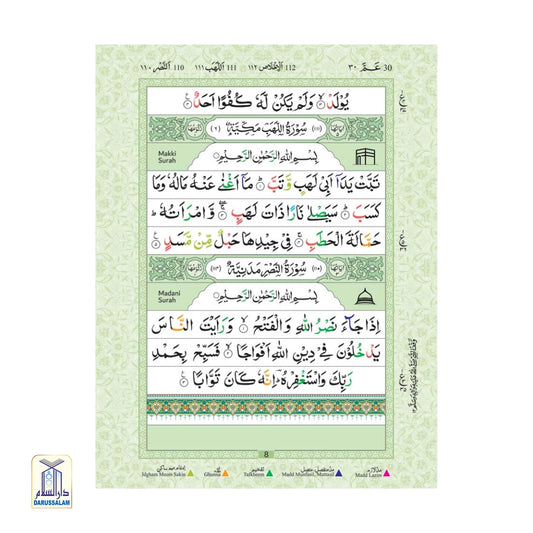 30 عَـمَّ ٣٠
112 اَلْاِخْلَاص ١١٢
111 اَللَّهَب ١١١
110 اَلنَّصْر ١١٠
يُوْلَدْ ۙ وَلَمْ يَكُنْ لَّهٗ كُفُوًا اَحَدٌ
سُوْرَةُ اللَّهَبِ مَكِّيَّةٌ
Makki
Surah
بِسْمِ اللّٰهِ الرَّحْمٰنِ الرَّحِيْمِ
تَبَّتْ يَدَاۤ اَبِيْ لَهَبٍ وَّتَبَّ ۗ مَاۤ اَغْنٰى عَنْهُ مَالُهٗ وَمَا
كَسَبَ ۗ سَيَصْلٰى نَارًا ذَاتَ لَهَبٍ ۙ وَّامْرَاَتُهٗ ۗ
حَمَّالَةَ الْحَطَبِ ۚ فِيْ جِيْدِهَا حَبْلٌ مِّنْ مَّسَدٍ
سُوْرَةُ النَّصْرِ مَدَنِيَّةٌ
Madani
Surah
بِسْمِ اللّٰهِ الرَّحْمٰنِ الرَّحِيْمِ
اِذَا جَآءَ نَصْرُ اللّٰهِ وَالْفَتْحُ ۙ وَرَاَيْتَ النَّاسَ
يَدْخُلُوْنَ فِيْ دِيْنِ اللّٰهِ اَفْوَاجًا ۙ فَسَبِّحْ بِحَمْدِ
رَبِّكَ وَاسْتَغْفِرْهُ ۗ اِنَّهٗ كَانَ تَوَّابًا
8
Idgham Meem Sakin
Ghunna
Tafkheem
Madd Munfasil, Muttasil
Madd Lazim
دار السلام
DARUSSALAM